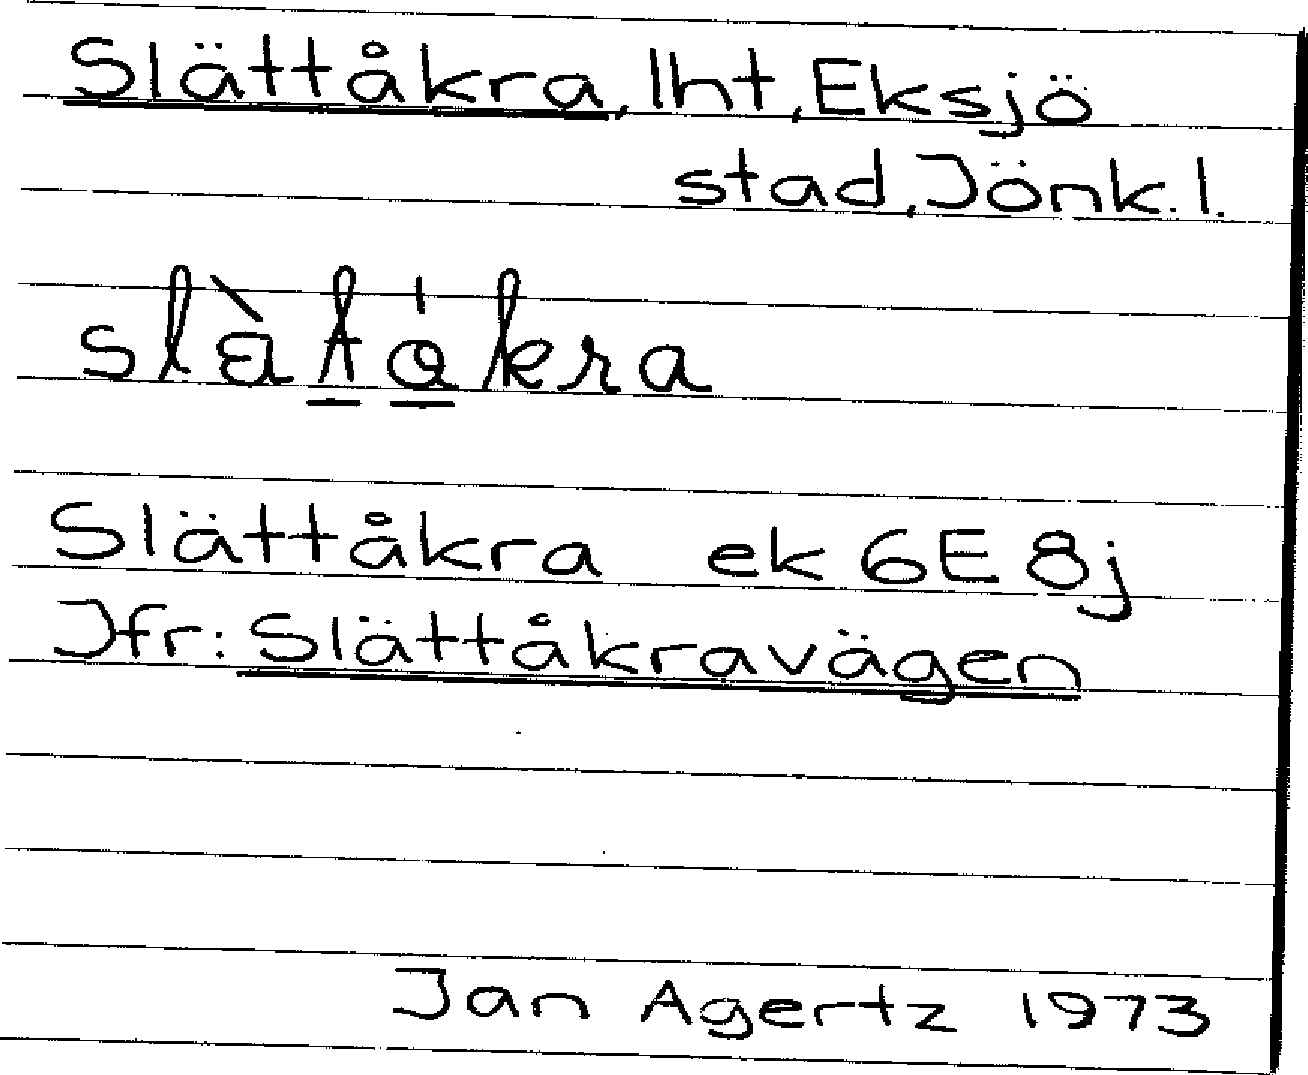 Slättåkra, lht, Eksjö
stad, Jönk. l.
Slättåkra ek 6E 8j
Jfr: Slättåkravägen
Jan Agertz 1973